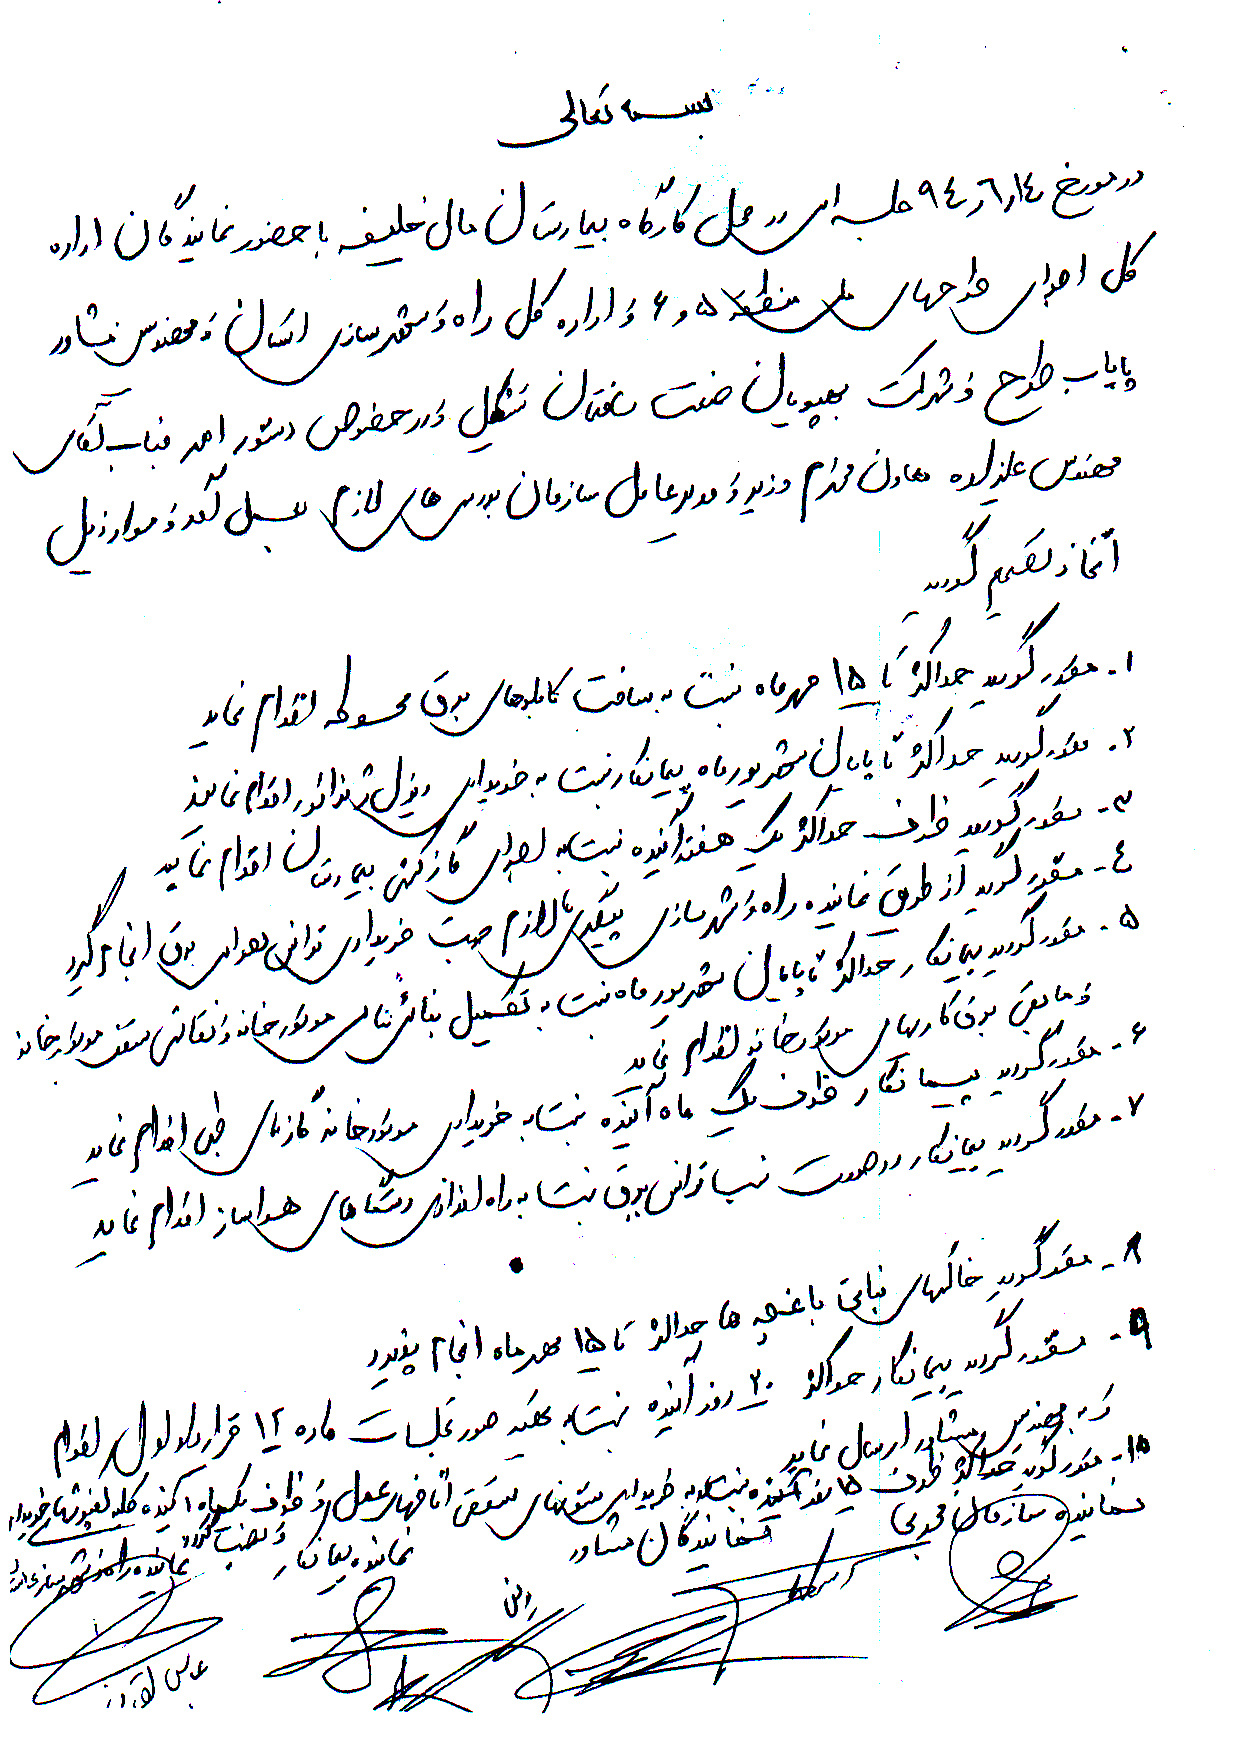 بسمه تعالی
در مورخ ٩٤/٦/١٤ جلسه ای در محل کارگاه بیمارستان مال خلیفه با حضور نمایندگان اداره
کل اجرای طرحهای ملی منطقه ۵ و ۶ و اداره کل راه و شهرسازی استان و مهندس مشاور
پایاب طرح و شرکت بهپویان صنعت سافتمان تشکیل و در خصوص دستور امر جناب آقای
مهندس علیزاده معاون محترم وزیر و مدیر عامل سازمان بررسی های لازم بعمل آمد و موارد ذیل
اتخاذ تصمیم گردید
۱- مقرر گردید حداکثر تا ۱۵ مهرماه نسبت به ساخت تابلوهای برق محوطه اقدام نماید
۲- مقرر گردید حداکثر تا پایان شهریور ماه پیمانکار نسبت به خریداری دیزل ژنراتور اقدام نمایند
۳- مقرر گردید ظرف حداکثر یک هفته آینده نسبت به اجرای گازکشی بیمارستان اقدام نماید
٤- مقرر گردید از طریق نماینده راه و شهرسازی پیگیری لازم جهت خریداری ترانس هوای برق انجام گیرد
۵- مقرر گردید پیمانکار حداکثر تا پایان شهریور ماه نسبت به تکمیل بنائی بنای موتورخانه و نقاشی سقف موتورخانه
و مابقی برق کاریهای موتورخانه اقدام نماید
۶- مقرر گردید پیمانکار ظرف یک ماه آینده نسبت به خریداری موتورخانه گازهای طبی اقدام نماید
۷- مقرر گردید پیمانکار در صورت نصب ترانس برق نسبت به راه اندازی دستگاههای هواساز اقدام نماید
۸- مقرر گردید خاکهای نباتی باغچه ها حداکثر تا ۱۵ مهرماه انجام پذیرد
۹- مقرر گردید پیمانکار حداکثر ۲۰ روز آینده نسبت به تهیه صورتجلسات ماده ۱۲ قرارداد اول اقدام
و به مهندس مشاور ارسال نماید
۱۰- مقرر گردید حداکثر ظرف ۱۵ روز آینده نسبت به خریداری ستونهای سقفی اتاقهای عمل و ظرف یکماه آینده کلیه خریداری
و نصب گردد
نماینده سازمان مجری نمایندگان مشاور نماینده پیمانکار نماینده راه و شهرسازی